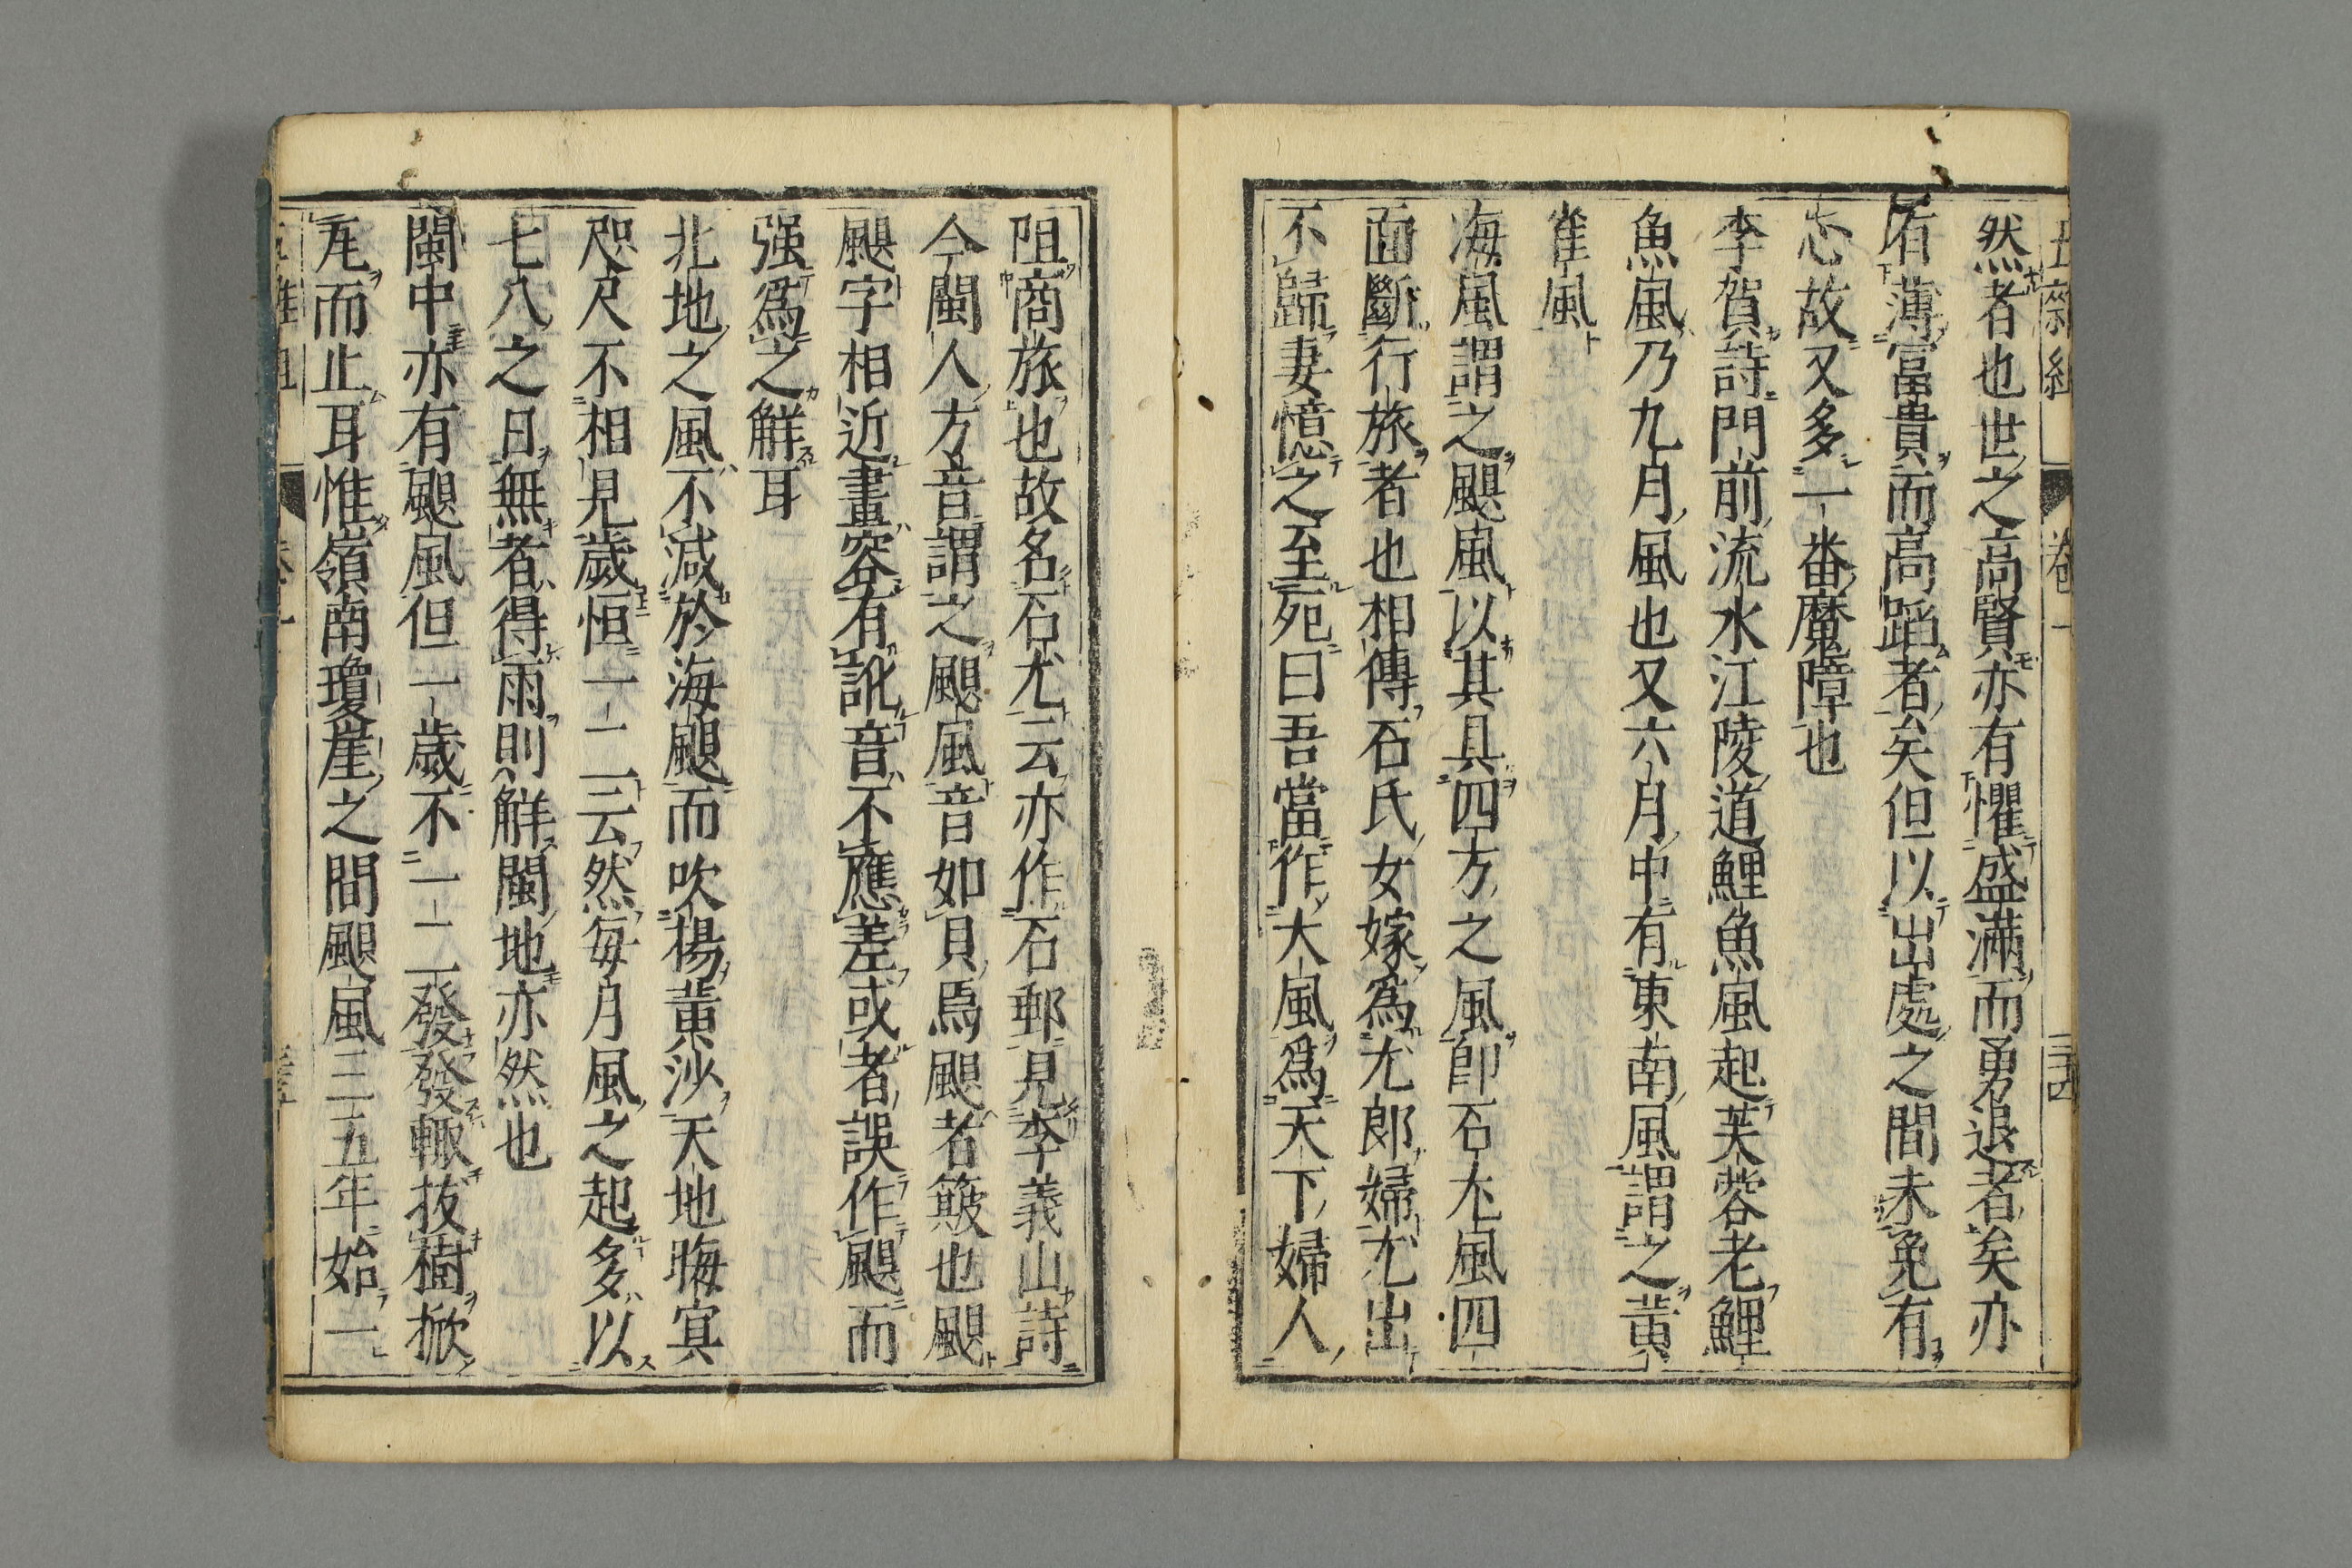 五雜組 卷一
然者也世之高賢亦有懼盛滿而勇退者矣亦
有薄富貴而高蹈者矣但以出處之間未免有
忘故又多一畨魔障也
李賀詩門前流水江陵道鯉魚風起芙蓉老鯉
魚風乃九月風也又六月中有東南風謂之黄
雀風
海風謂之颶風以其具四方之風即石尤風四
面斷行旅者也相傳石氏女嫁爲尤郎婦尤出
不歸妻憶之至死曰吾當作大風爲天下婦人
阻商旅也故名石尤云亦作石郵見李義山詩
今閩人方音謂之颶風音如貝焉颶者簸也颶
颶字相近畫容有訛音不應差或者誤作颶而
强爲之解耳
北地之風不減於海颶而吹揚黄沙天地晦冥
咫尺不相見歲恒一二云然每月風之起多以
七八之日無者得雨則解閩地亦然也
閩中亦有颶風但一歲不一二發發輒拔樹掀
瓦而止耳惟嶺南瓊崖之間颶風三五年始一